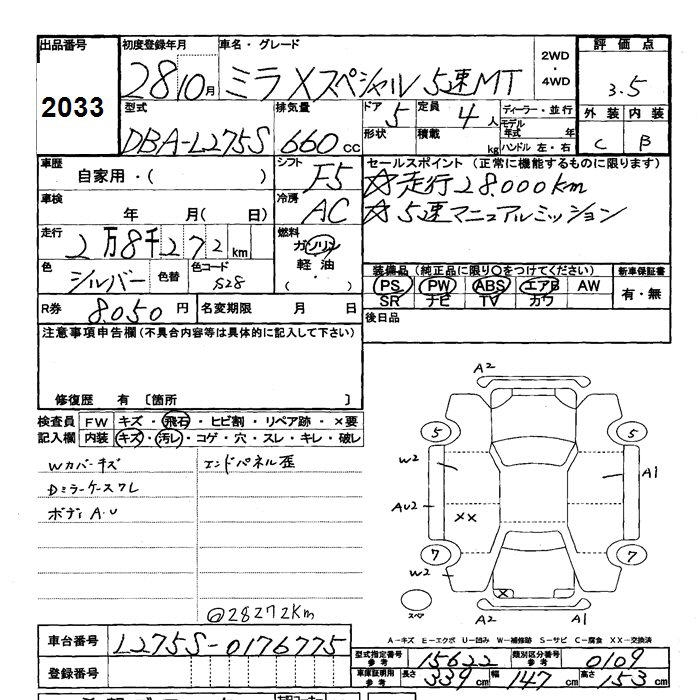 出品番号
2033
初度登録年月
28 10月
車名・グレード
ミラ Xスペシャル 5速MT
2WD
・
4WD
評価点
3.5
型式
DBA-L275S
排気量
660 cc
ドア
5
定員
4 人
形状
積載
kg
ディーラー・並行
モデル
年式 年
ハンドル 左・右
外装 内装
C B
車歴
自家用・( )
シフト
F5
セールスポイント (正常に機能するものに限ります)
☆走行28.000km
☆5速マニュアルミッション
車検
年 月( 日)
冷房
AC
走行
2万8千272km
燃料
ガソリン
軽油
( ・ )
色
シルバー
色替
色コード
S28
装備品 (純正品に限り○をつけてください)
PS PW ABS エアB AW
SR ナビ TV カワ
新車保証書
有・無
R券 8,050 円
名変期限 月 日
後日品
注意事項申告欄 (不具合内容等は具体的に記入して下さい)
修復歴 有 [箇所 ]
検査員 記入欄
FW キズ・飛石・ヒビ割・リペア跡・×要
内装 キズ・汚レ・コゲ・穴・スレ・キレ・破レ
Wカバーキズ
エンドパネル歪
Dミラーケースワレ
ボディA.U
@28272Km
A2
5
5
W2
A1
AU2
XX
7
7
W2
X
スペア
A2
A1
A-キズ E-エクボ U-凹み W-補修跡 S-サビ C-腐食 XX-交換済
車台番号
L275S-0176775
登録番号
型式指定番号
参考
15622
類別区分番号
参考
0109
車庫証明用
参考
長さ
339 cm
幅
147 cm
高さ
153 cm